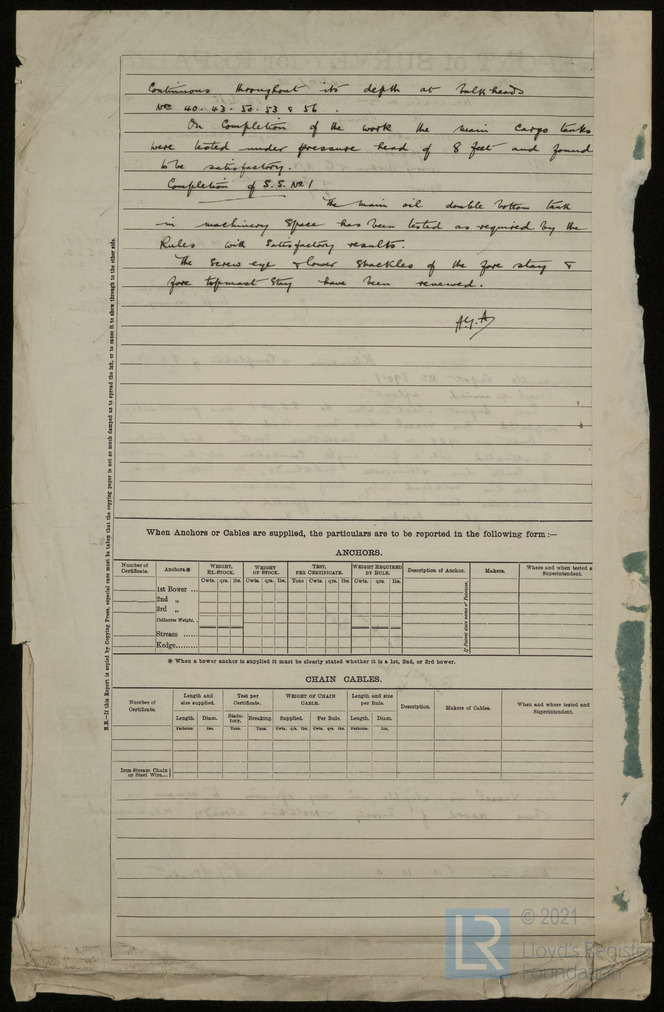 Continuous throughout its depth at bulkheads
Nos 40. 43. 50. 53 & 56.
On Completion of the work the main cargo tanks
were tested under pressure head of 8 feet and found
to be satisfactory.
Completion of S.S. No 1
The main oil double bottom tank
in machinery space has been tested as required by the
Rules with satisfactory results.
The screw eye & lower shackles of the fore stay &
fore topmast stay have been renewed.
A.Y.A
N.B.—If this Report is copied by Copying Press, especial care must be taken that the copying paper is not so much damped as to spread the ink, or to cause it to show through to the other side.
When Anchors or Cables are supplied, the particulars are to be reported in the following form:—
ANCHORS.
Number of Certificate. Anchors.* WEIGHT, EX-STOCK. WEIGHT OF STOCK. TEST, PER CERTIFICATE. WEIGHT REQUIRED BY RULE. Description of Anchor. Makers. Where and when tested a
Superintendent.
Cwts. qrs. lbs. Cwts. qrs. lbs. Tons Cwts. qrs. lbs. Cwts. qrs. lbs.
1st Bower ...
2nd „
3rd „
Collective Weight.
Stream ......
Kedge.........
If Patent state name of Patentee.
* When a bower anchor is supplied it must be clearly stated whether it is a 1st, 2nd, or 3rd bower.
CHAIN CABLES.
Number of Certificate. Length and size supplied. Test per Certificate. WEIGHT OF CHAIN CABLE. Length and size per Rule. Description. Makers of Cables. When and where tested and
Superintendent.
Length. Diam. Statutory. Breaking. Supplied. Per Rule. Length. Diam.
Fathoms. Ins. Tons. Tons. Cwts. qrs. lbs. Cwts. qrs. lbs. Fathoms. Ins.
Iron Stream Chain
or Steel Wire...
LR
© 2021
Lloyd's Register
Foundation